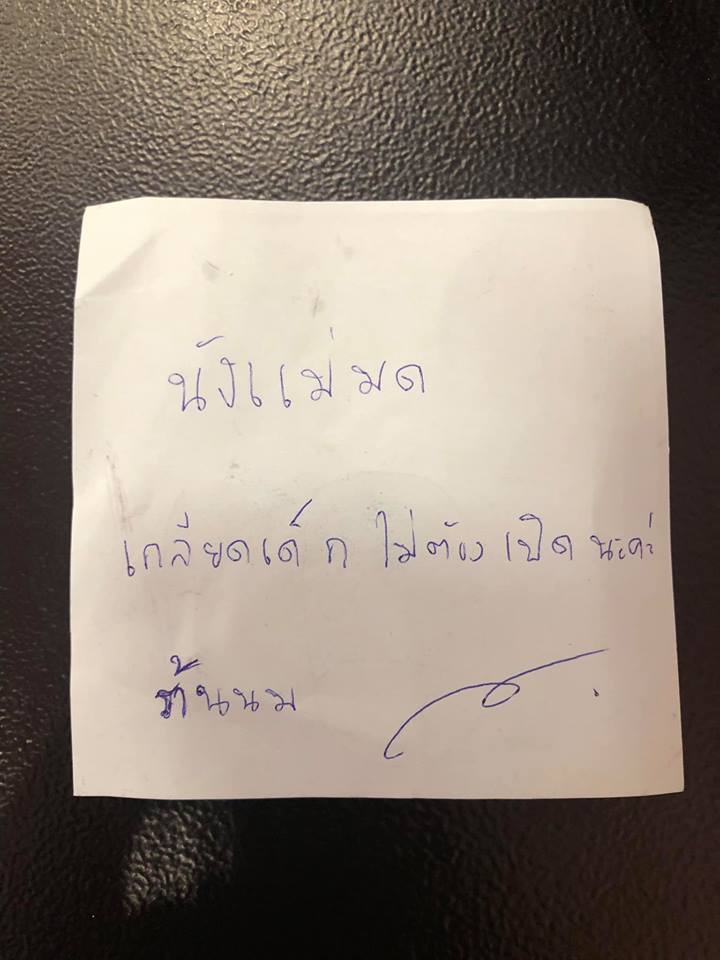 นังแม่มด
เกลียดเด็ก ไม่ต้อง เปิด นะค่ะ
นนม